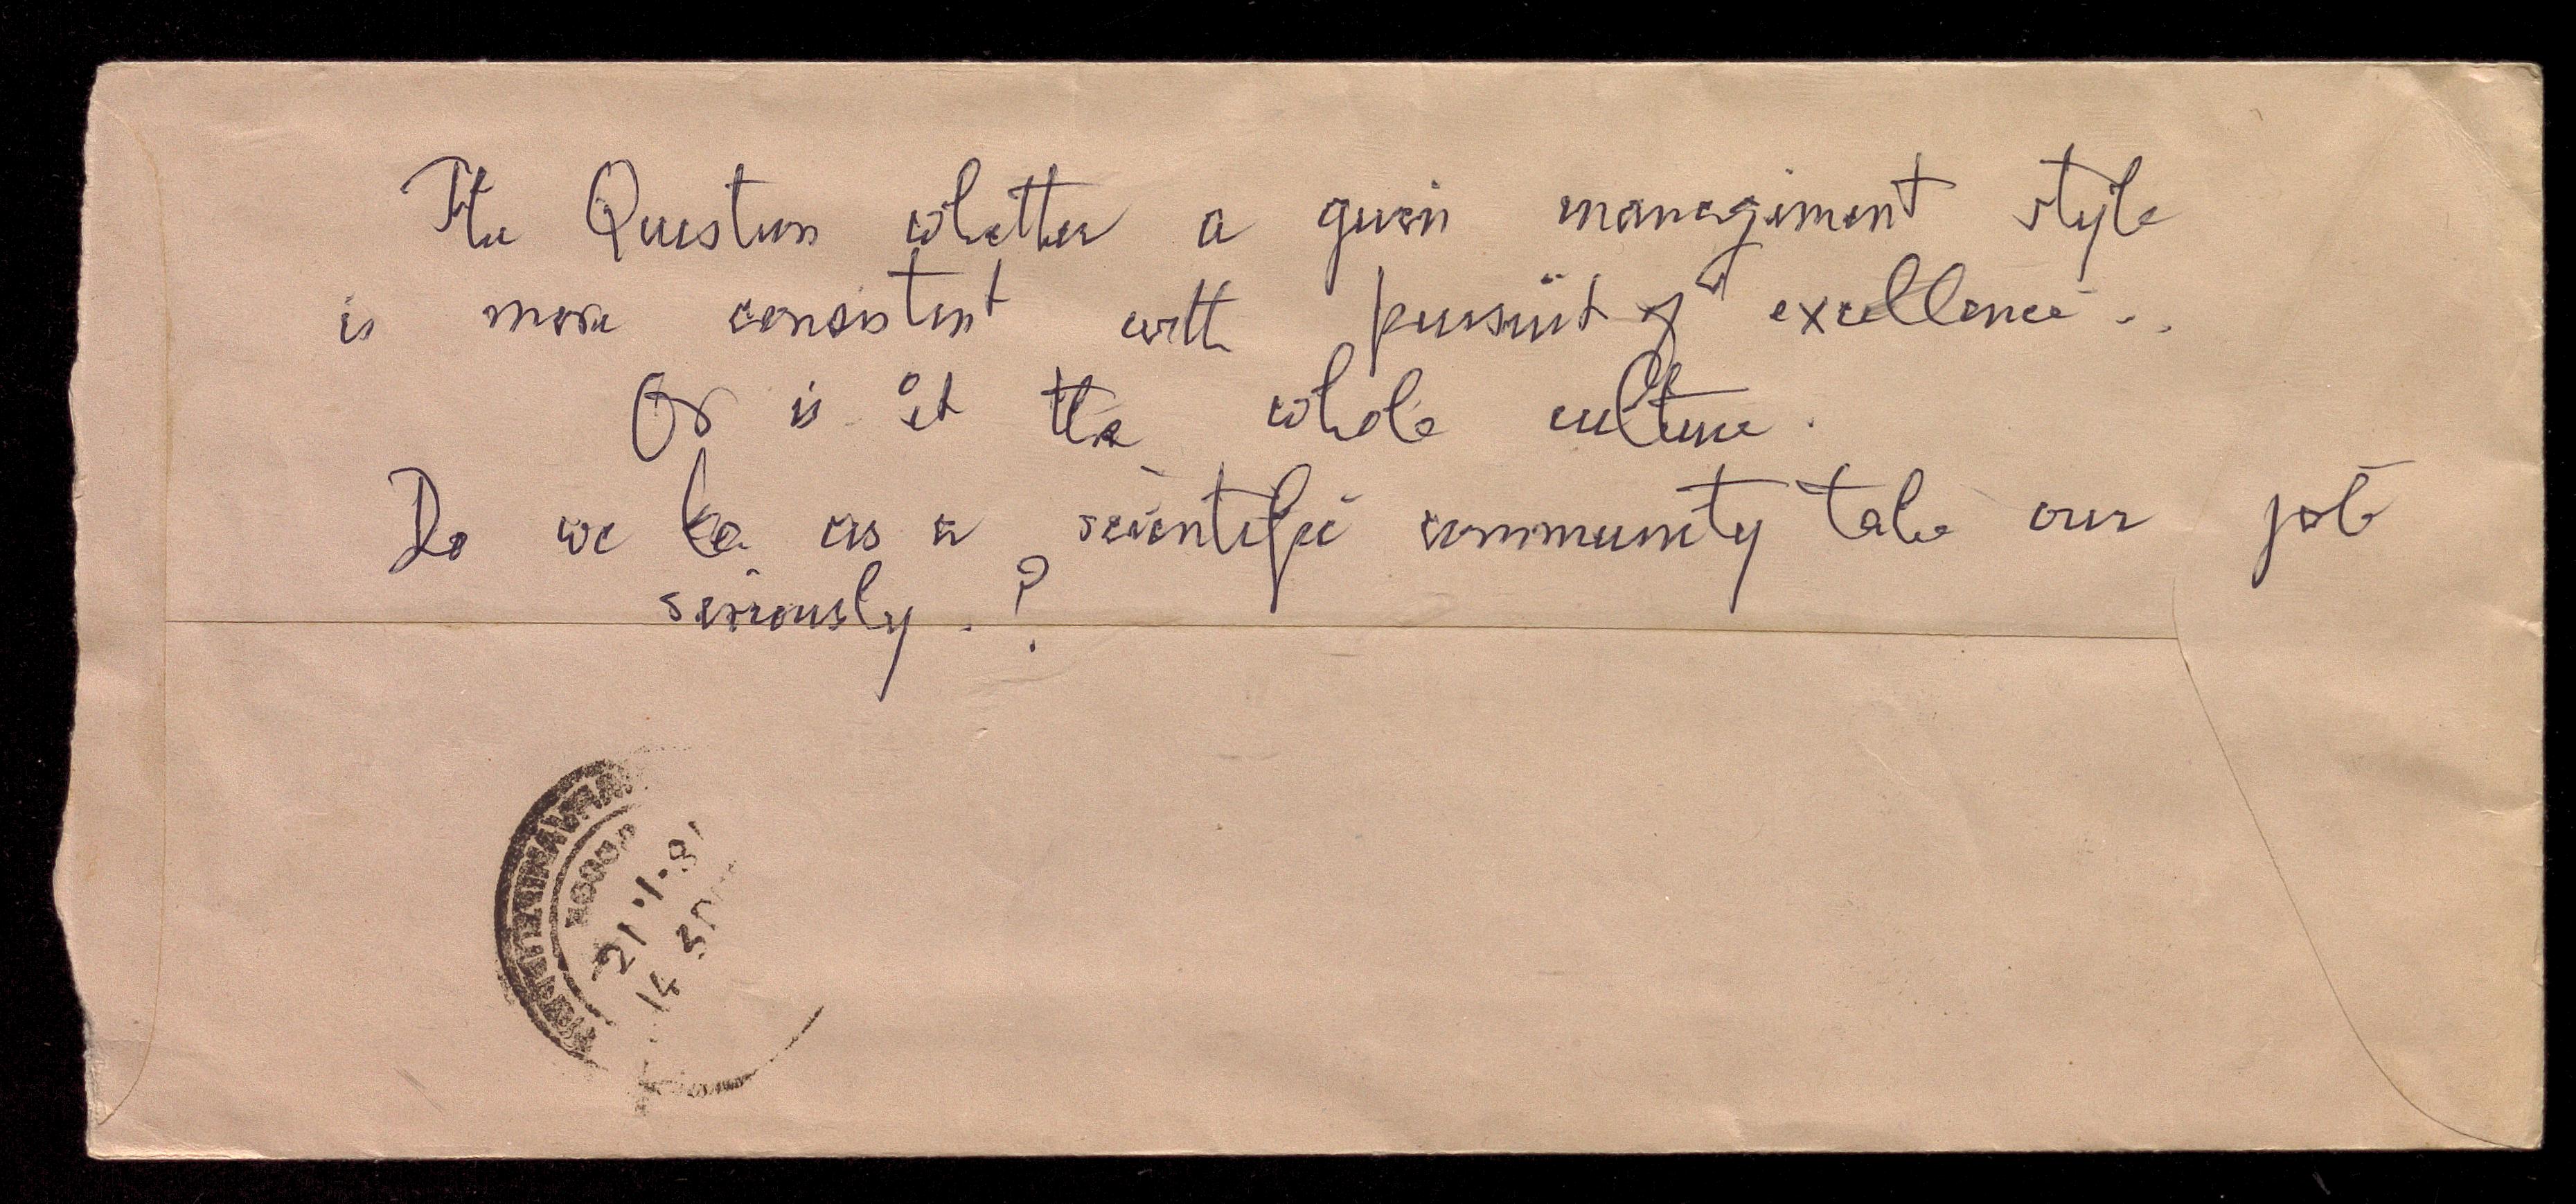 The Question whether a given management style
is more consistent with pursuit of excellence..
Or is it the whole culture.
Do we as a scientific community take our job
seriously. ?
21·1·9
14 30